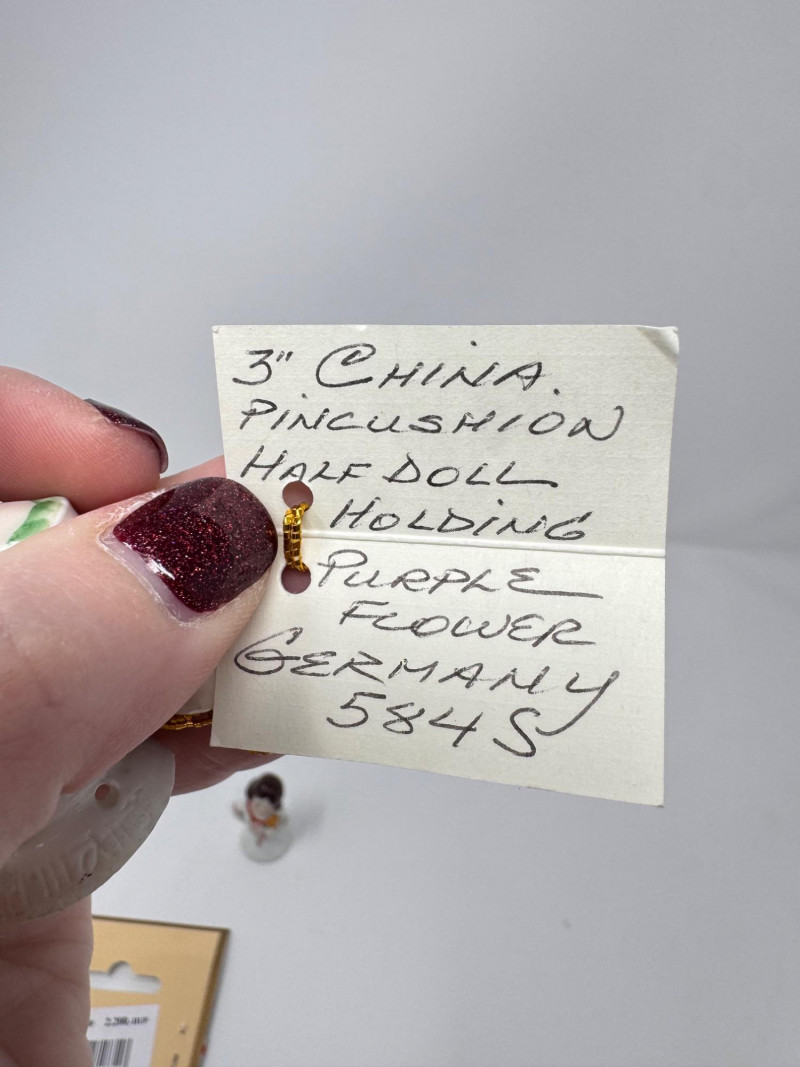 3" CHINA.
PINCUSHION
HALF DOLL
HOLDING
PURPLE
FLOWER
GERMANY
584 S